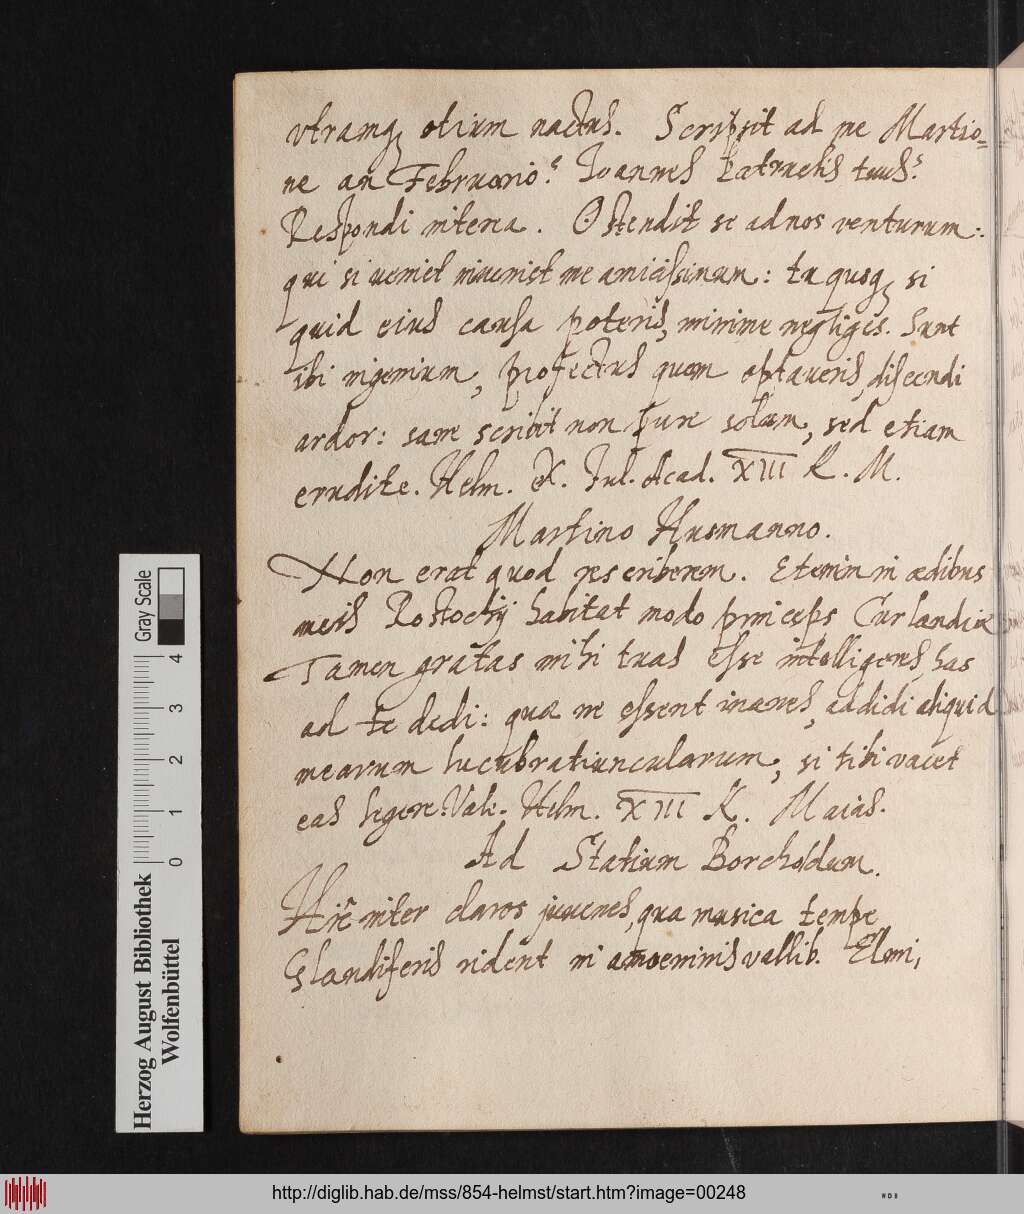 vtramq, otium nactus. Scripsit ad me Martio=
ne an Februario? Ioannes Patruelis tuus?
Respondi interea. Ostendit se ad nos venturum:
qui si ueniet inueniet me amicissimum: tu quoq, si
quid eius causa poteris, minime negliges. Sunt
ibi ingenium, profectus quem optaueris, discendi
ardor: sane scribit non pure solum, sed etiam
erudite. Helm. Jul. Acad. XIII K. M.
Martino Husmanno.
Non erat quod rescriberem. Etenim in ædibus
meis Rostochij habitat modo princeps Curlandiæ
Tamen gratas mihi tuas esse intelligeres, has
ad te dedi: quæ ne essent inanes, addidi aliquid
mearum lucubratiuncularum, si tibi vacet
eas legere. Vale. Helm. XIII K. Maias.
Ad Statium Borcholdum.
Hic inter claros juuenes, qua musica tempe
Glandiferis rident in amoeninis vallib. Elmi,
Herzog August Bibliothek
Wolfenbüttel
0 1 2 3 4
Gray Scale
http://diglib.hab.de/mss/854-helmst/start.htm?image=00248